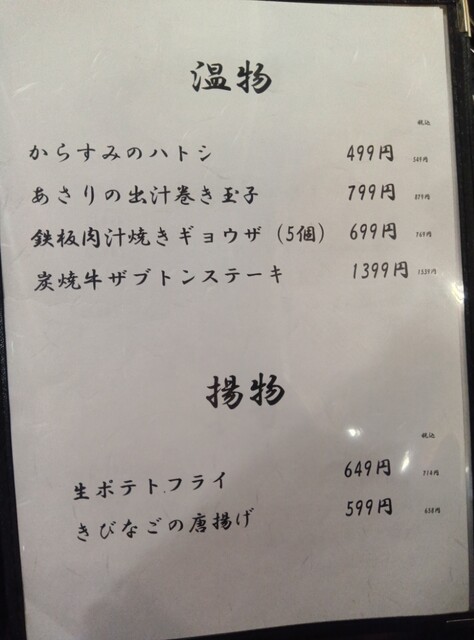 温物
税込
からすみのハトシ 499円 549円
あさりの出汁巻き玉子 799円 879円
鉄板肉汁焼きギョウザ (5個) 699円 769円
炭焼牛ザブトンステーキ 1399円 1539円
揚物
税込
生ポテトフライ 649円 714円
きびなごの唐揚げ 599円 658円